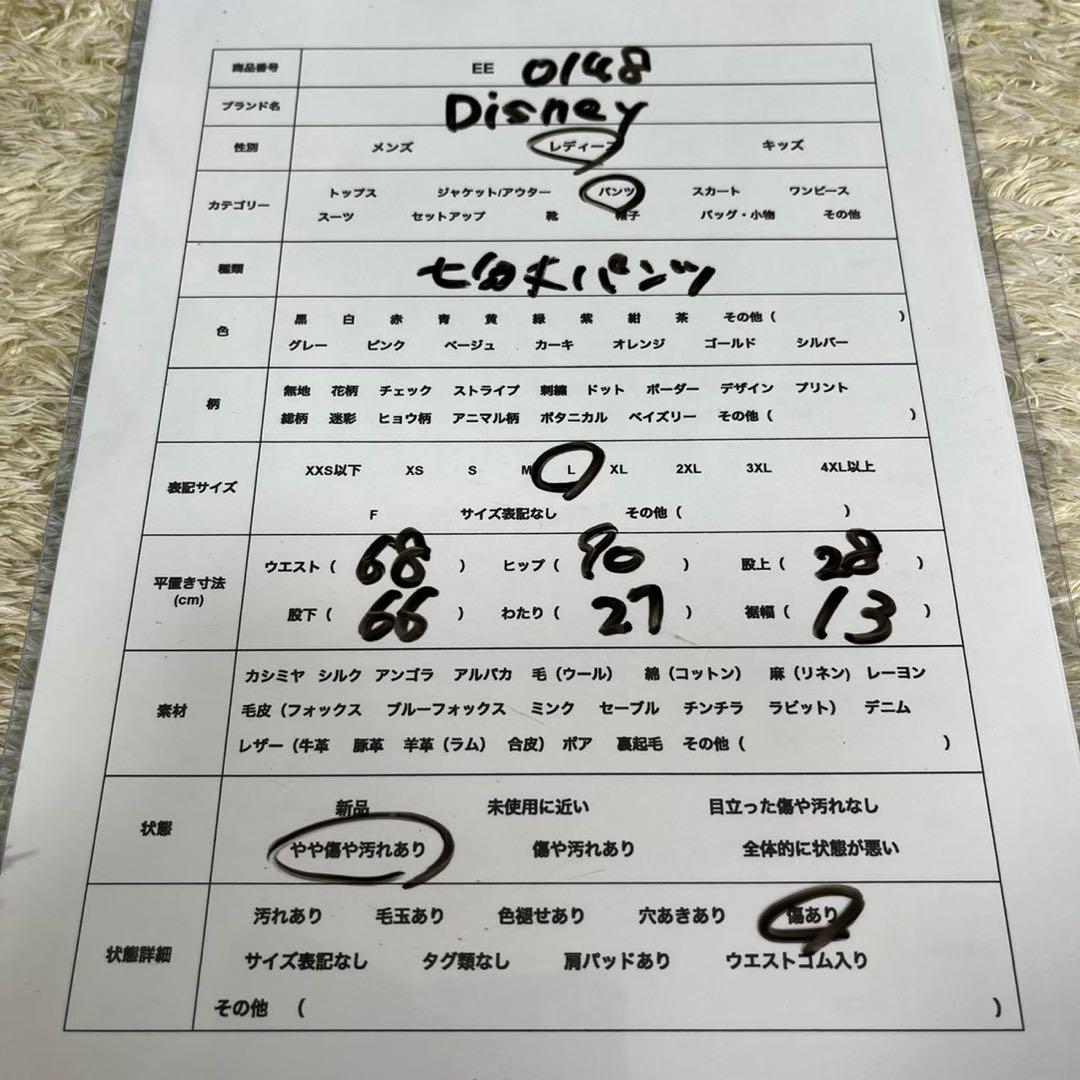 商品番号 EE 0148
ブランド名 Disney
性別 メンズ レディース キッズ
カテゴリー トップス ジャケット/アウター パンツ スカート ワンピース
スーツ セットアップ 靴 帽子 バッグ・小物 その他
種類 七分丈パンツ
色 黒 白 赤 青 黄 緑 紫 紺 茶 その他 ( )
グレー ピンク ベージュ カーキ オレンジ ゴールド シルバー
柄 無地 花柄 チェック ストライプ 刺繍 ドット ボーダー デザイン プリント
総柄 迷彩 ヒョウ柄 アニマル柄 ボタニカル ペイズリー その他 ( )
表記サイズ XXS以下 XS S M L XL 2XL 3XL 4XL以上
F サイズ表記なし その他 ( )
平置き寸法 (cm) ウエスト ( 68 ) ヒップ ( 90 ) 股上 ( 28 )
股下 ( 66 ) わたり ( 27 ) 裾幅 ( 13 )
素材 カシミヤ シルク アンゴラ アルパカ 毛 (ウール) 綿 (コットン) 麻 (リネン) レーヨン
毛皮 (フォックス ブルーフォックス ミンク セーブル チンチラ ラビット) デニム
レザー (牛革 豚革 羊革 (ラム) 合皮) ボア 裏起毛 その他 ( )
状態 新品 未使用に近い 目立った傷や汚れなし
やや傷や汚れあり 傷や汚れあり 全体的に状態が悪い
状態詳細 汚れあり 毛玉あり 色褪せあり 穴あきあり 傷あり
サイズ表記なし タグ類なし 肩パッドあり ウエストゴム入り
その他 ( )